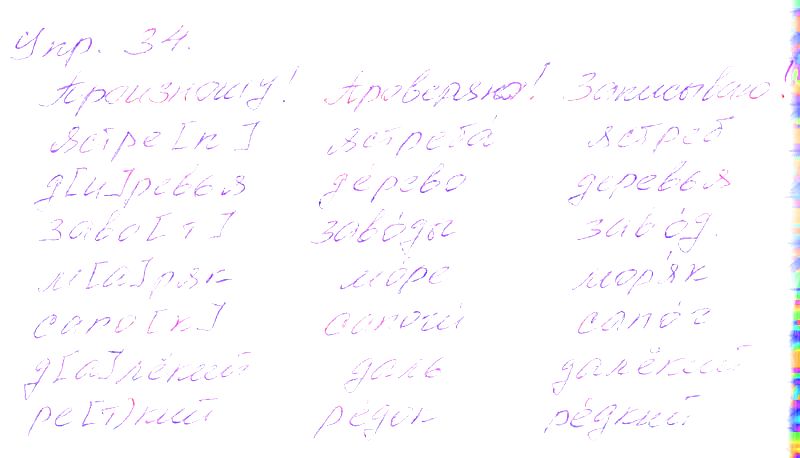 Упр. 34.
Произношу! Проверяю! Записываю!
ястре[п] ястреба́ ястреб
д[и]ревья де́рево деревья
заво[т] заво́ды заво́д.
м[а]ряк мо́ре моря́к
сапо[к] сапоги сапо́г
д[а]лёкий даль далёкий
ре[т)кий ре́док ре́дкий